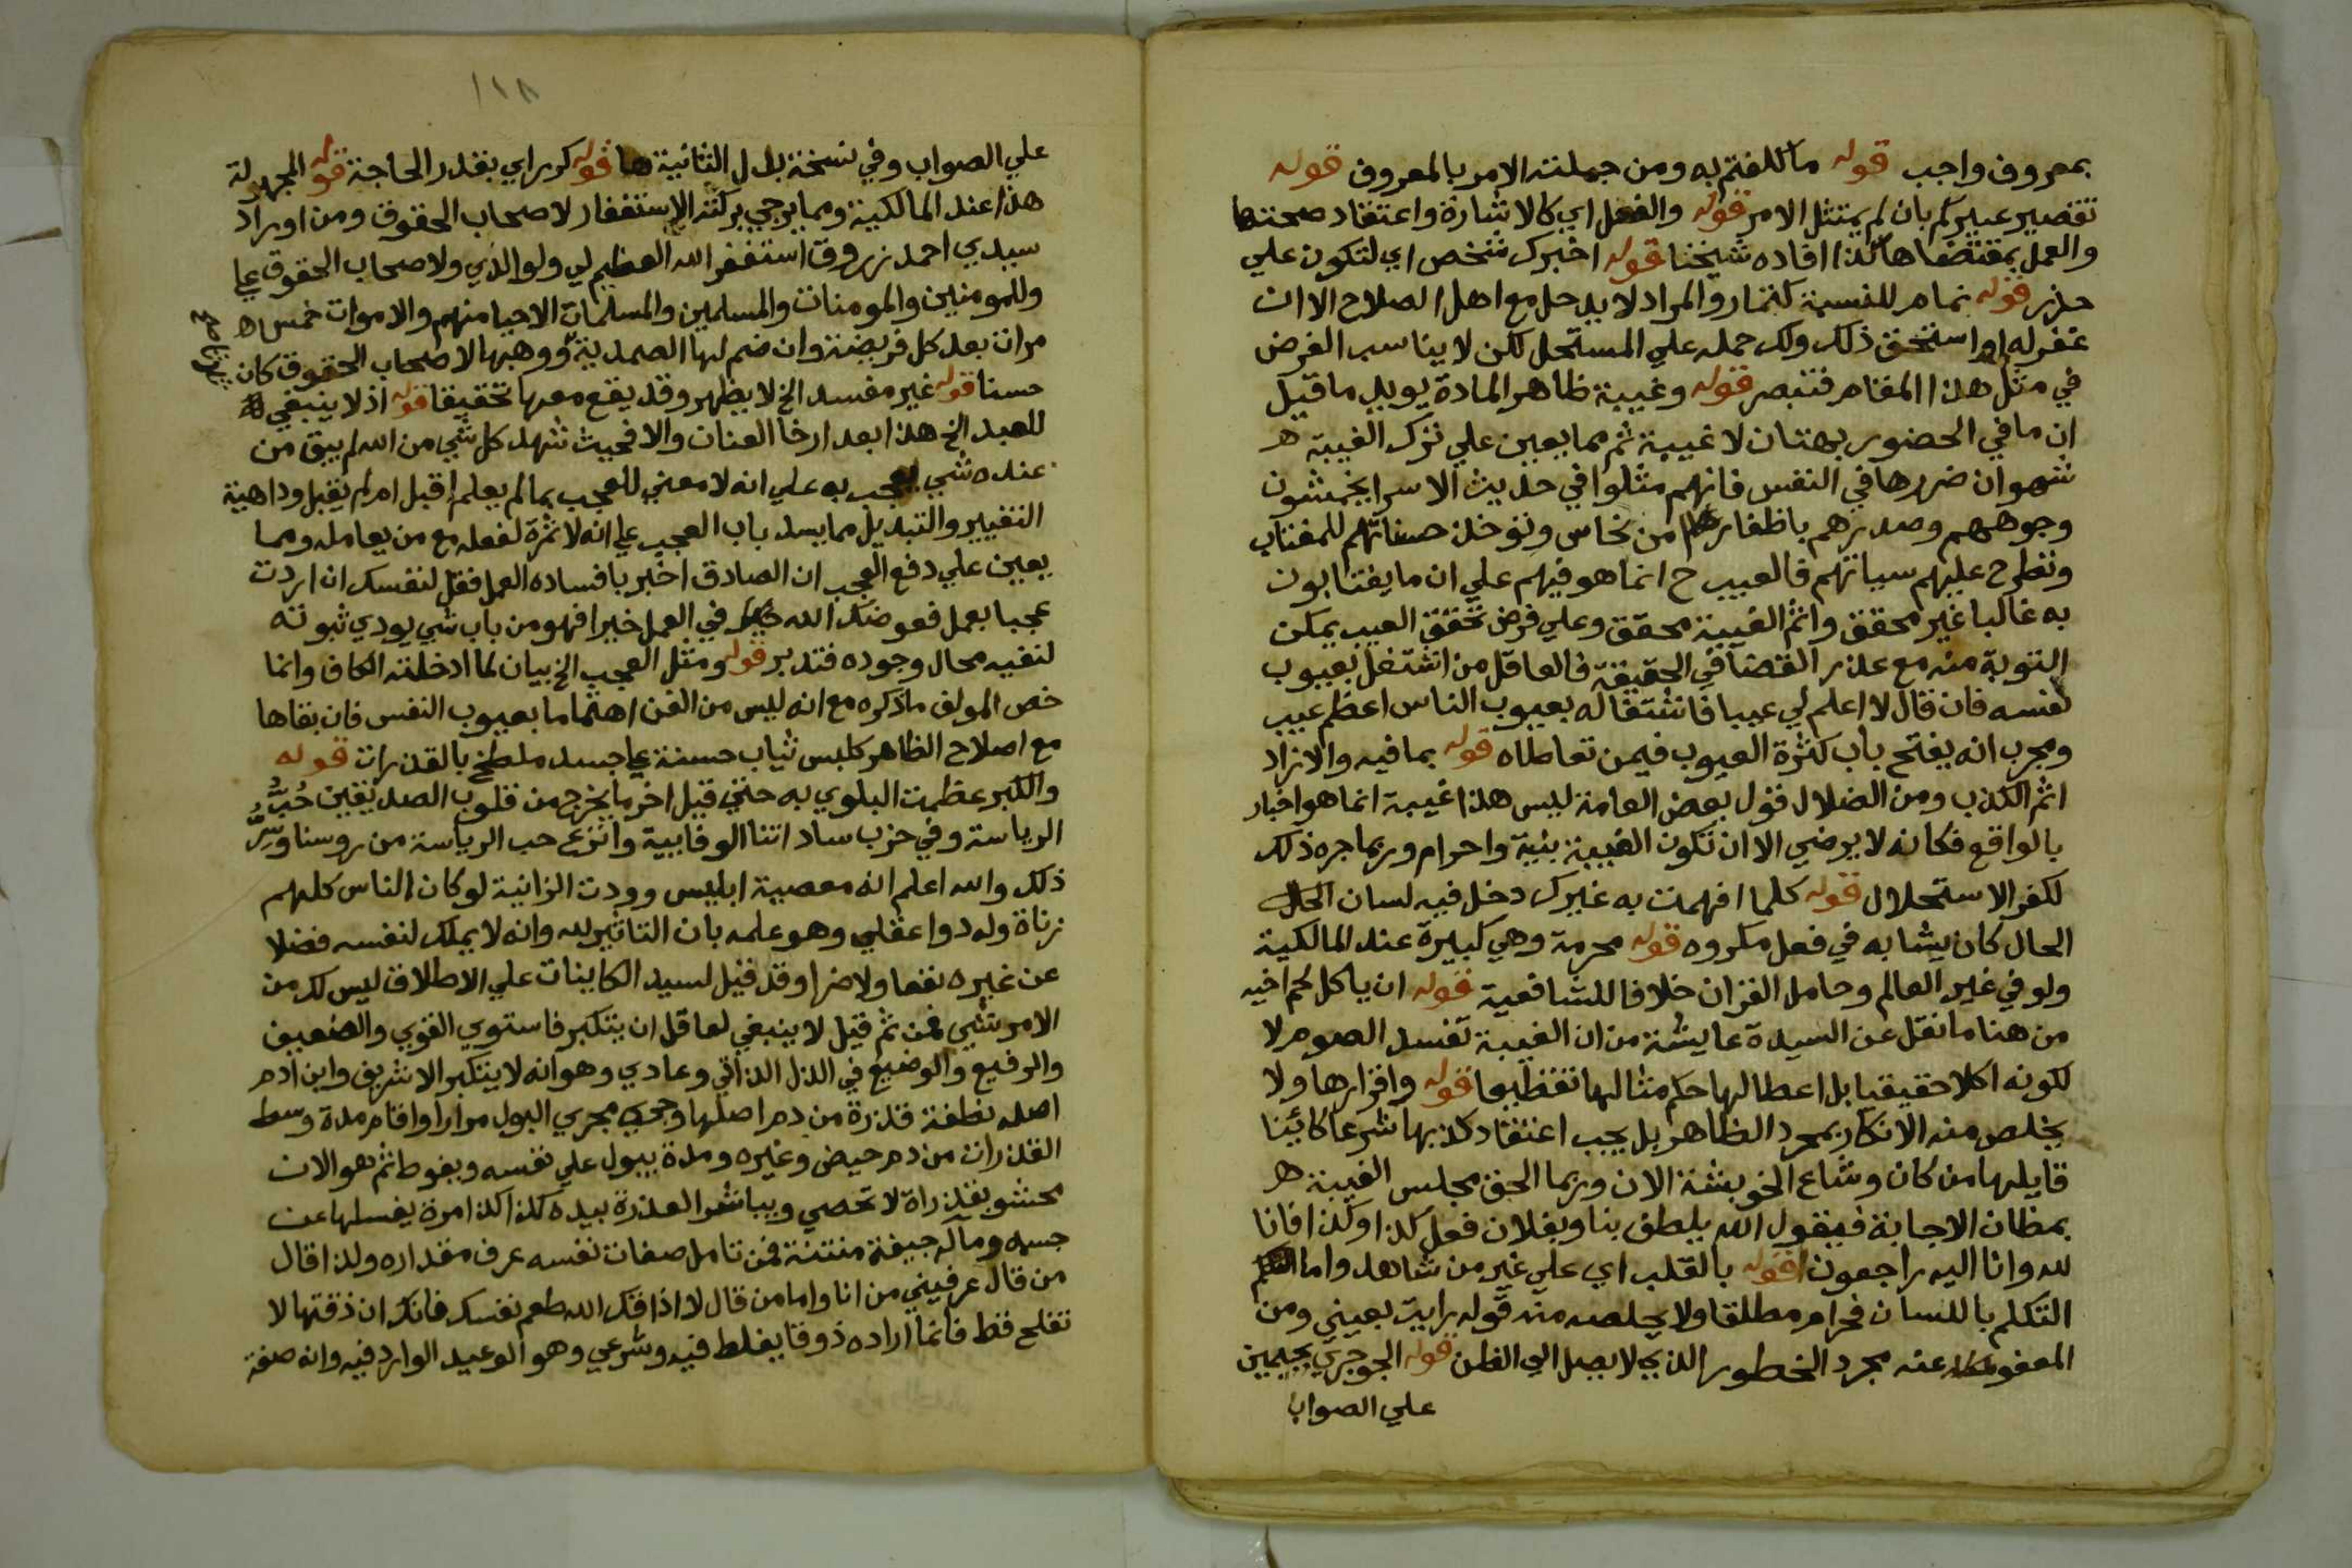 بمعروف واجب قوله ما كلفتم به ومن جملته الامر بالمعروف قوله
تقصير غيركم بان لم يمتثل الامر قوله والفعل اي كالاشارة واعتقاد صحتها
والعمل بمقتضاها كذا افاده شيخنا قوله اخبرك شخص اي لتكون علي
حذر قوله نمام للنسبة كتمار والمراد لا يدخل مع اهل الصلاح الا ان
غفر له او استحق ذلك ولك حمله علي المستحل لكن لا يناسب الغرض
في مثل هذا المقام فتبصر قوله وغيبة ظاهر المادة يويد ما قيل
ان ما في الحضور بهتان لا غيبة ثم مما يعين علي ترك الغيبة
شهوان ضررها في النفس فانهم مثلوا في حديث الاسرا يخمشون
وجوههم وصدرهم باظفارهم من نحاس وتوخذ حسناتهم للمغتاب
وتطرح عليهم سياتهم فالعيب ح انما هو فيهم علي ان ما يغتابون
به غالبا غير محقق واثم الغيبة محقق وعلي فرض تحقق العيب يمكن
التوبة منه مع عذر القضا في الحقيقة فالعاقل من اشتغل بعيوب
نفسه فان قال لا اعلم لي عيبا فاشتغاله بعيوب الناس اعظم عيب
ومجرب انه يفتح باب كثرة العيوب فيمن تعاطاه قوله بما فيه والا زاد
اثم الكذب ومن الضلال قول بعض العامة ليس هذا غيبة انما هو اخبار
بالواقع فكانه لا يرضي الا ان تكون الغيبة بنية واحرام وربما جره ذلك
لكفر الاستحلال قوله كلما افهمت به غيرك دخل فيه لسان الحال
الحال كان يشابه في فعل مكروه قوله محرمة وهي كبيرة عند المالكية
ولو في غير العالم وحامل القران خلافا للشافعية قوله ان ياكل لحم اخيه
من هنا ما نقل عن السيدة عايشة من ان الغيبة تفسد الصوم لا
لكونه اكلا حقيقيا بل اعطا لها حكم مثالها تفظيعا قوله واقرارها ولا
يخلص منه الانكار بمجرد الظاهر بل يجب اعتقاد كذبها شرعا كائنا
قايلها من كان وشاع الخوبشنة الان وربما الحق مجلس الغيبة
بمظان الاجابة فيقول الله يلطف بنا وبفلان فعل كذا وكذا فانا
لله وانا اليه راجعون قوله بالقلب اي علي غير من شاهد واما
التكلم باللسان فحرام مطلقا ولا يخلصه منه قوله رايت بعيني ومن
المعفو عنه مجرد الخطور الذي لا يصل الي الظن قوله الجوجري بجيمين
علي الصواب
١١٨
علي الصواب وفي نسخة بدل الثانية ها قوله كرر اي بقدر الحاجة قوله المجهولة
هذا عند المالكية ومما يرجي بركته الاستغفار لاصحاب الحقوق ومن اوراد
سيدي احمد زروق استغفر الله العظيم لي ولوالدي ولاصحاب الحقوق علي
وللمومنين والمومنات والمسلمين والمسلمات الاحيا منهم والاموات خمس
مرات بعد كل فريضة وان ضم لها الصمدية ووهبها لاصحاب الحقوق كان
حسنا قوله غير مفسد الخ لا يظهر وقد يقع معها تحقيقا قوله اذ لا ينبغي
للعبد الخ هذا بعد ارخا العنان والا فحيث شهد كل شي من الله لم يبق من
عنده شي يعجب به علي انه لا معني للعجب بما لم يعلم اقبل ام لم يقبل وداهية
التغيير والتبديل مما يسد باب العجب علي انه لا ثمرة لفعله مع من يعامله ومما
يعين علي دفع العجب ان الصادق اخبر بافساده العمل فقل لنفسك ان اردت
عجبا بعمل فعوضك الله في العمل خيرا فهو من باب شي يودي ثبوته
لنفيه محال وجوده فتدبر قوله ومثل العجب الخ بيان لما ادخلته الكاف وانما
خص المولف ما ذكره مع انه ليس من الفن اهتماما بعيوب النفس فان بقاها
مع اصلاح الظاهر كلبس ثياب حسنة علي جسد ملطخ بالقذرات قوله
والكبر عظمت البلوي به حتي قيل اخر ما يخرج من قلوب الصديقين حب
الرياسة وفي حزب ساداتنا الوفايية وانزع حب الرياسة من روسنا وسر
ذلك والله اعلم انه معصية ابليس وودت الزانية لو كان الناس كلهم
زناة وله دوا عقلي وهو علمه بان التاثير لله وانه لا يملك لنفسه فضلا
عن غيره نفعا ولا ضرا وقد قيل لسيد الكاينات علي الاطلاق ليس لك من
الامر شي فمن ثم قيل لا ينبغي لعاقل ان يتكبر فاستوي القوي والضعيف
والرفيع والوضيع في الذل الذاتي وعادي وهو انه لا يتكبر الا شريف وابن ادم
اصله نطفة قذرة من دم اصلها وجري مجري البول مرارا واقام مدة وسط
القذرات من دم حيض وغيره ومدة يبول علي نفسه ويغوط ثم هو الان
محشو بقذراة لا تحصي ويباشر العذرة بيده كذا كذا مرة يغسلها عن
جسمه ومآله جيفة منتنة فمن تامل صفات نفسه عرف مقداره ولذا قال
من قال عرفيني من انا واما من قال لا اذاقك الله طعم نفسك فانك ان ذقتها لا
تفلح قط فانما اراده ذوقا يغلط فيه وشرعي وهو الوعيد الوارد فيه وانه صفة